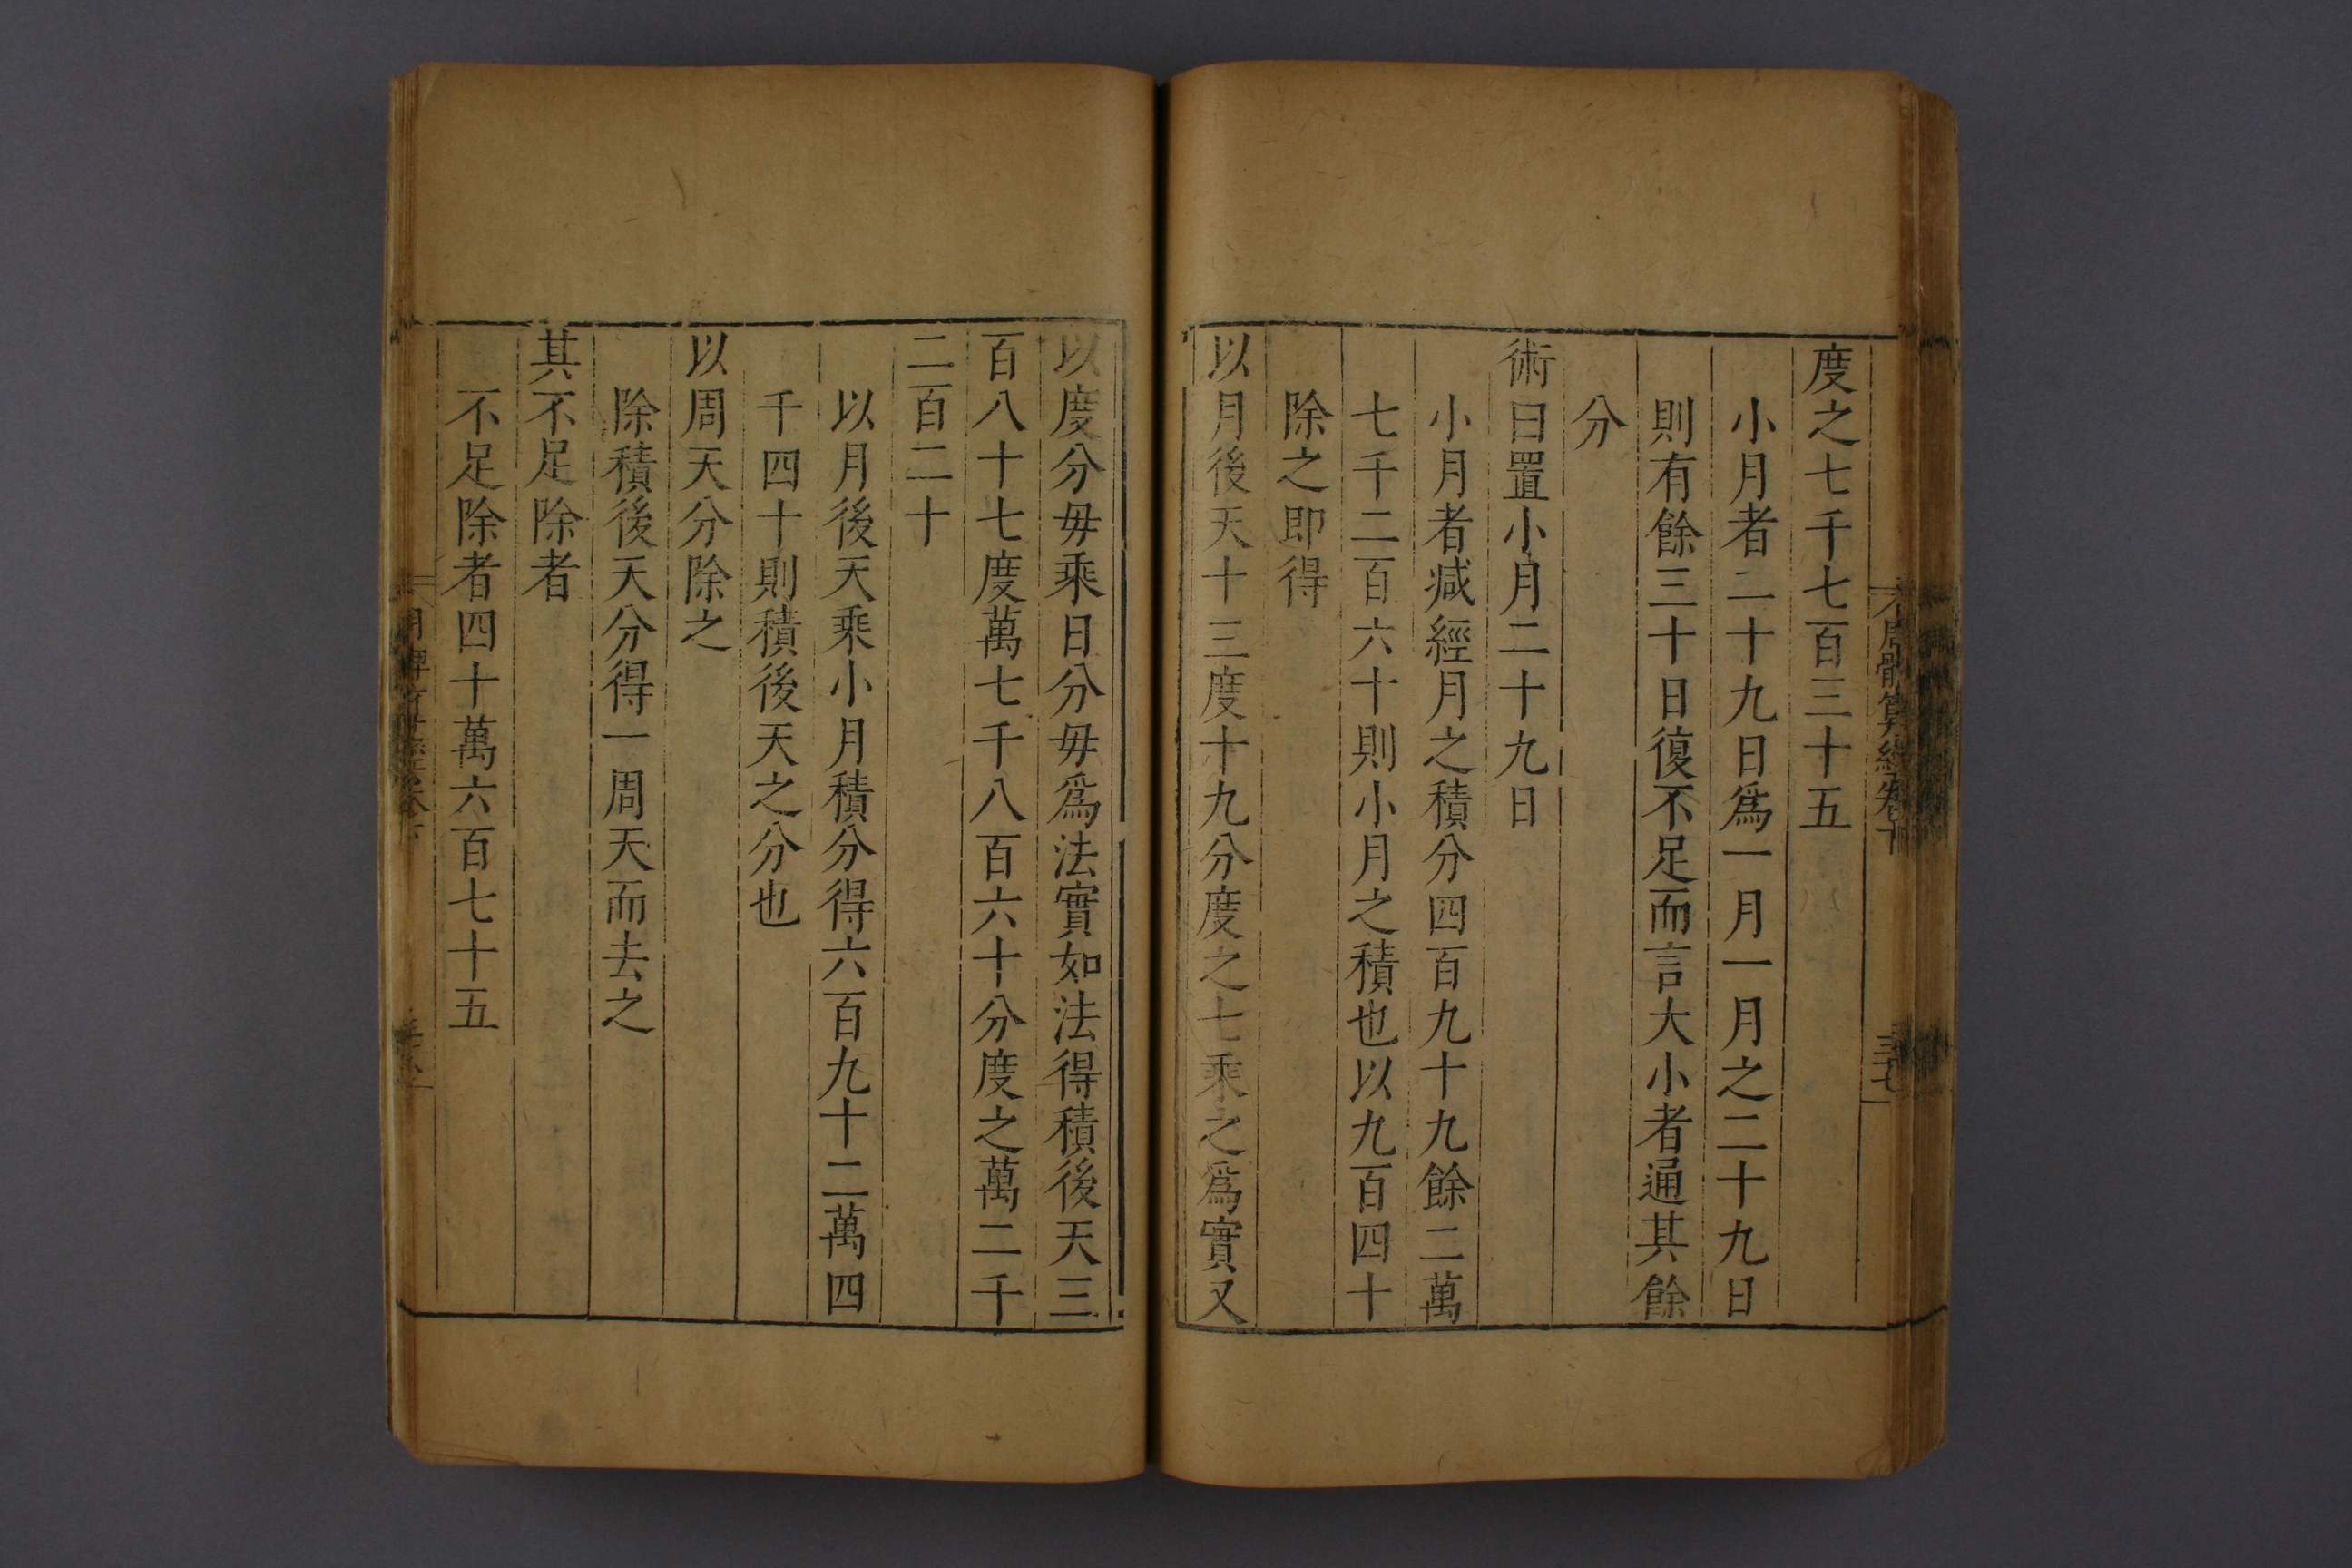 度之七千七百三十五
小月者二十九日爲一月一月之二十九日
則有餘三十日復不足而言大小者通其餘
分
術曰置小月二十九日
小月者減經月之積分四百九十九餘二萬
七千二百六十則小月之積也以九百四十
除之即得
以月後天十三度十九分度之七乘之爲實又
周髀算經卷下
三七
以度分母乘日分母爲法實如法得積後天三
百八十七度萬七千八百六十分度之萬二千
二百二十
以月後天乘小月積分得六百九十二萬四
千四十則積後天之分也
以周天分除之
除積後天分得一周天而去之
其不足除者
不足除者四十萬六百七十五
周髀算經卷下